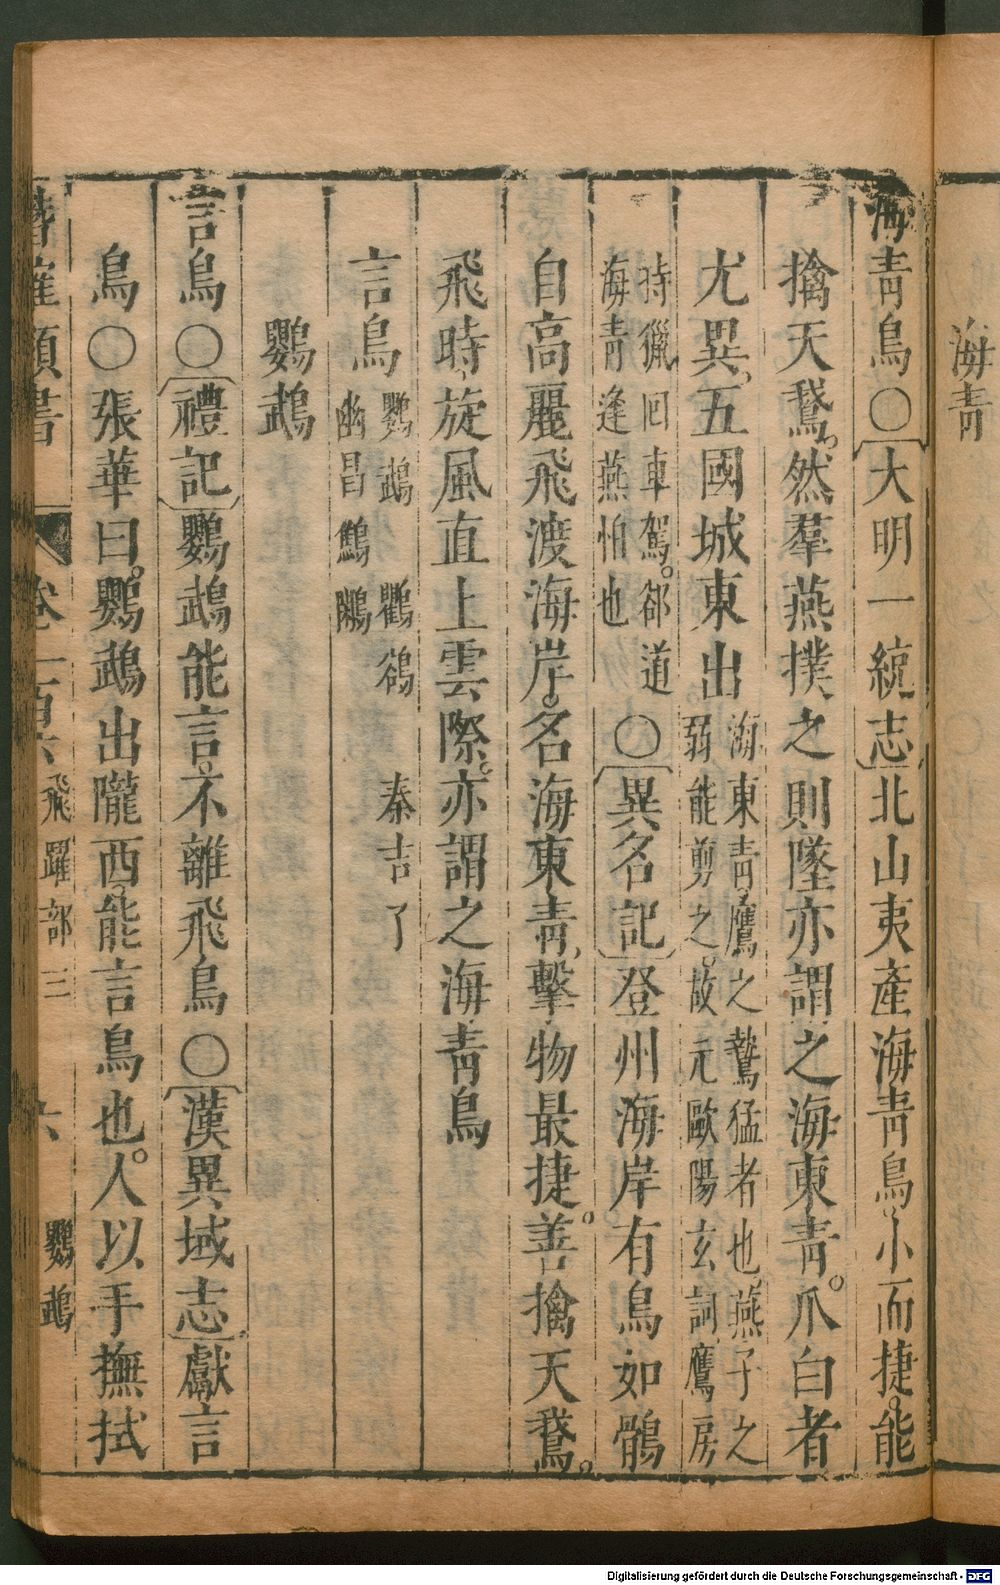 海青
海青鳥○大明一統志北山夷產海青鳥小而捷能
擒天鵞然羣燕撲之則墜亦謂之海東青爪白者
尤異五國城東出海東青鷹之鷙猛者也燕子之弱能剪之故元歐陽玄詞鷹房
持獵囘車駕郤道海青逢燕怕也○異名記登州海岸有鳥如鶻
自高麗飛渡海岸名海東青擊物最捷善擒天鵞
飛時旋風直上雲際亦謂之海青鳥
言鳥鸚鵡 鸜鵒 秦吉了 幽昌鷦鵬
鸚鵡
言鳥○禮記鸚鵡能言不離飛鳥○漢異域志獻言
鳥○張華曰鸚鵡出隴西能言鳥也人以手撫拭
類書 卷一百六 飛躍部三 六 鸚鵡
Digitalisierung gefördert durch die Deutsche Forschungsgemeinschaft - DFG